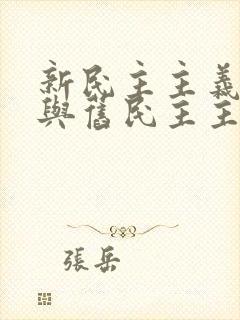 新民主主義
與舊民主主
張岳